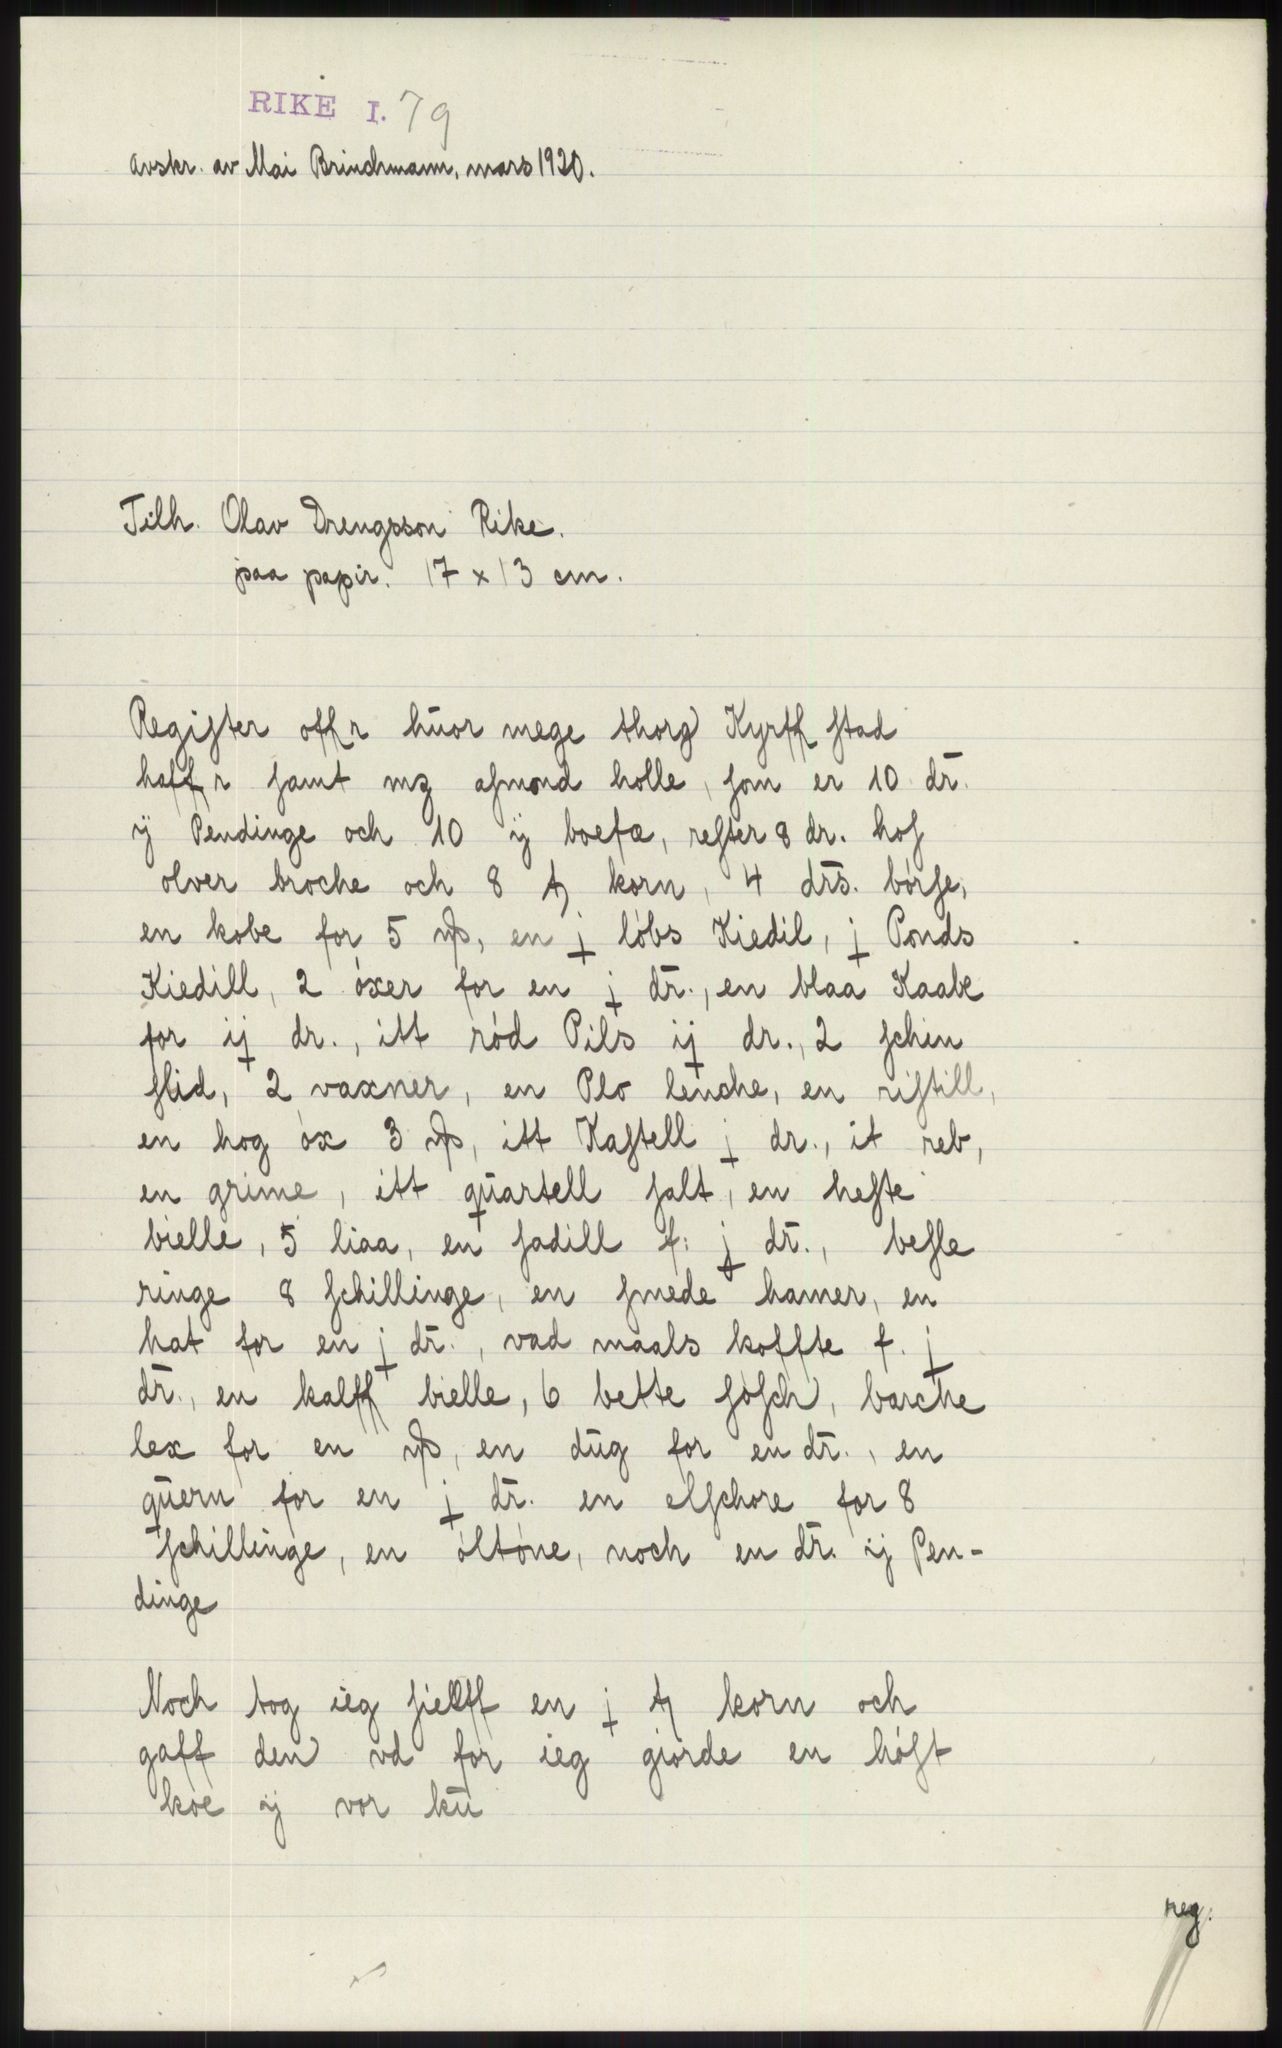 RIKE I. 79
Avskr. av Mai Brinchmann, mars 1920.
Tilh. Olav Drengsson Rike.
paa papir. 17 x 13 cm.
Regiſter offr huor mege thorg Kyrff ſtad
haffr ſamt mz aſmond holle, ſom er 10 dr.
ÿ Pendinge och 10 ÿ boefæ, reſter 8 dr. hoſ
olver broche och 8 korn, 4 drs. börſe,
en kobe for 5 , en j löbs Kiedil, j Ponds
Kiedill, 2 öxer for en j dr., en blaa Kaabe
for ij dr., itt röd Pils ij dr., 2 ſchin
ſlid, 2 vaxner, en Plo lenche, en riſtill,
en hog öx 3 , itt Kaſtell j dr., it reb,
en grime, itt quartell ſalt, en heſte
bielle, 5 liaa, en ſadill f: j dr., beſle
ringe 8 ſchillinge, en ſmede hamer, en
hat for en j dr., vad maals koffte f. j
dr., en kalff bielle, 6 bette ſöſch, barche
lex for en , en dug for en dr., en
quern for en j dr. en elſchore for 8
ſchillinge, en öltöne, noch en dr. ij Pen-
dinge
Noch tog ieg ſielff en j korn och
gaff den vd for ieg giorde en höſt
köe ij vor ku
reg.